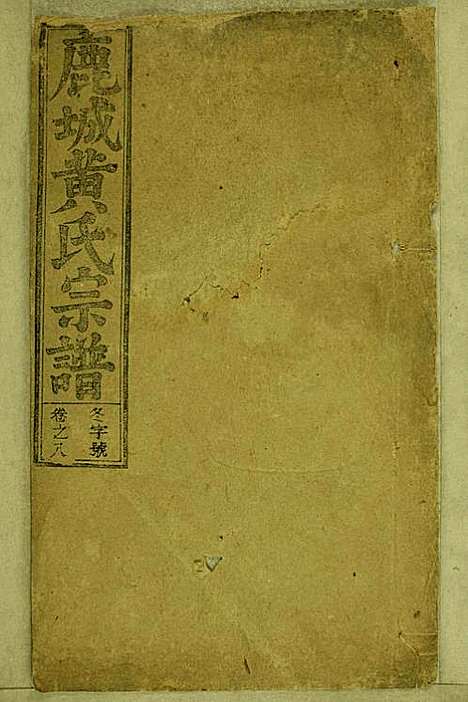 鹿城黄氏宗譜
冬字號
卷之八